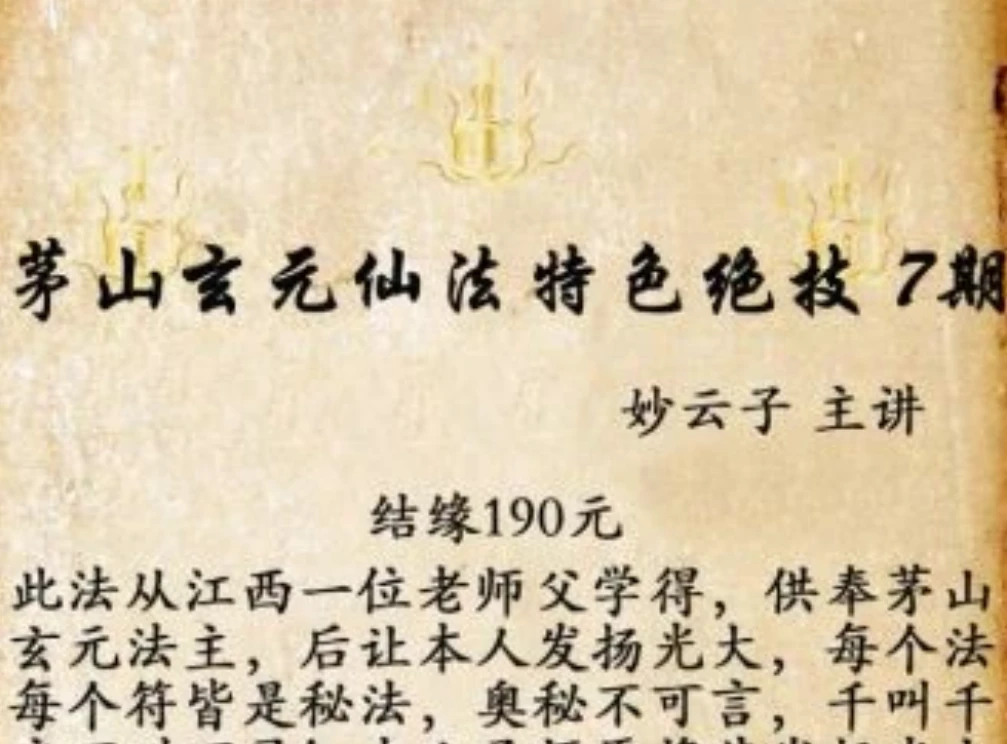 茅山玄元仙法特色绝技 7期
妙云子 主讲
结缘190元
此法从江西一位老师父学得，供奉茅山
玄元法主，后让本人发扬光大，每个法
每个符皆是秘法，奥秘不可言，千叫千